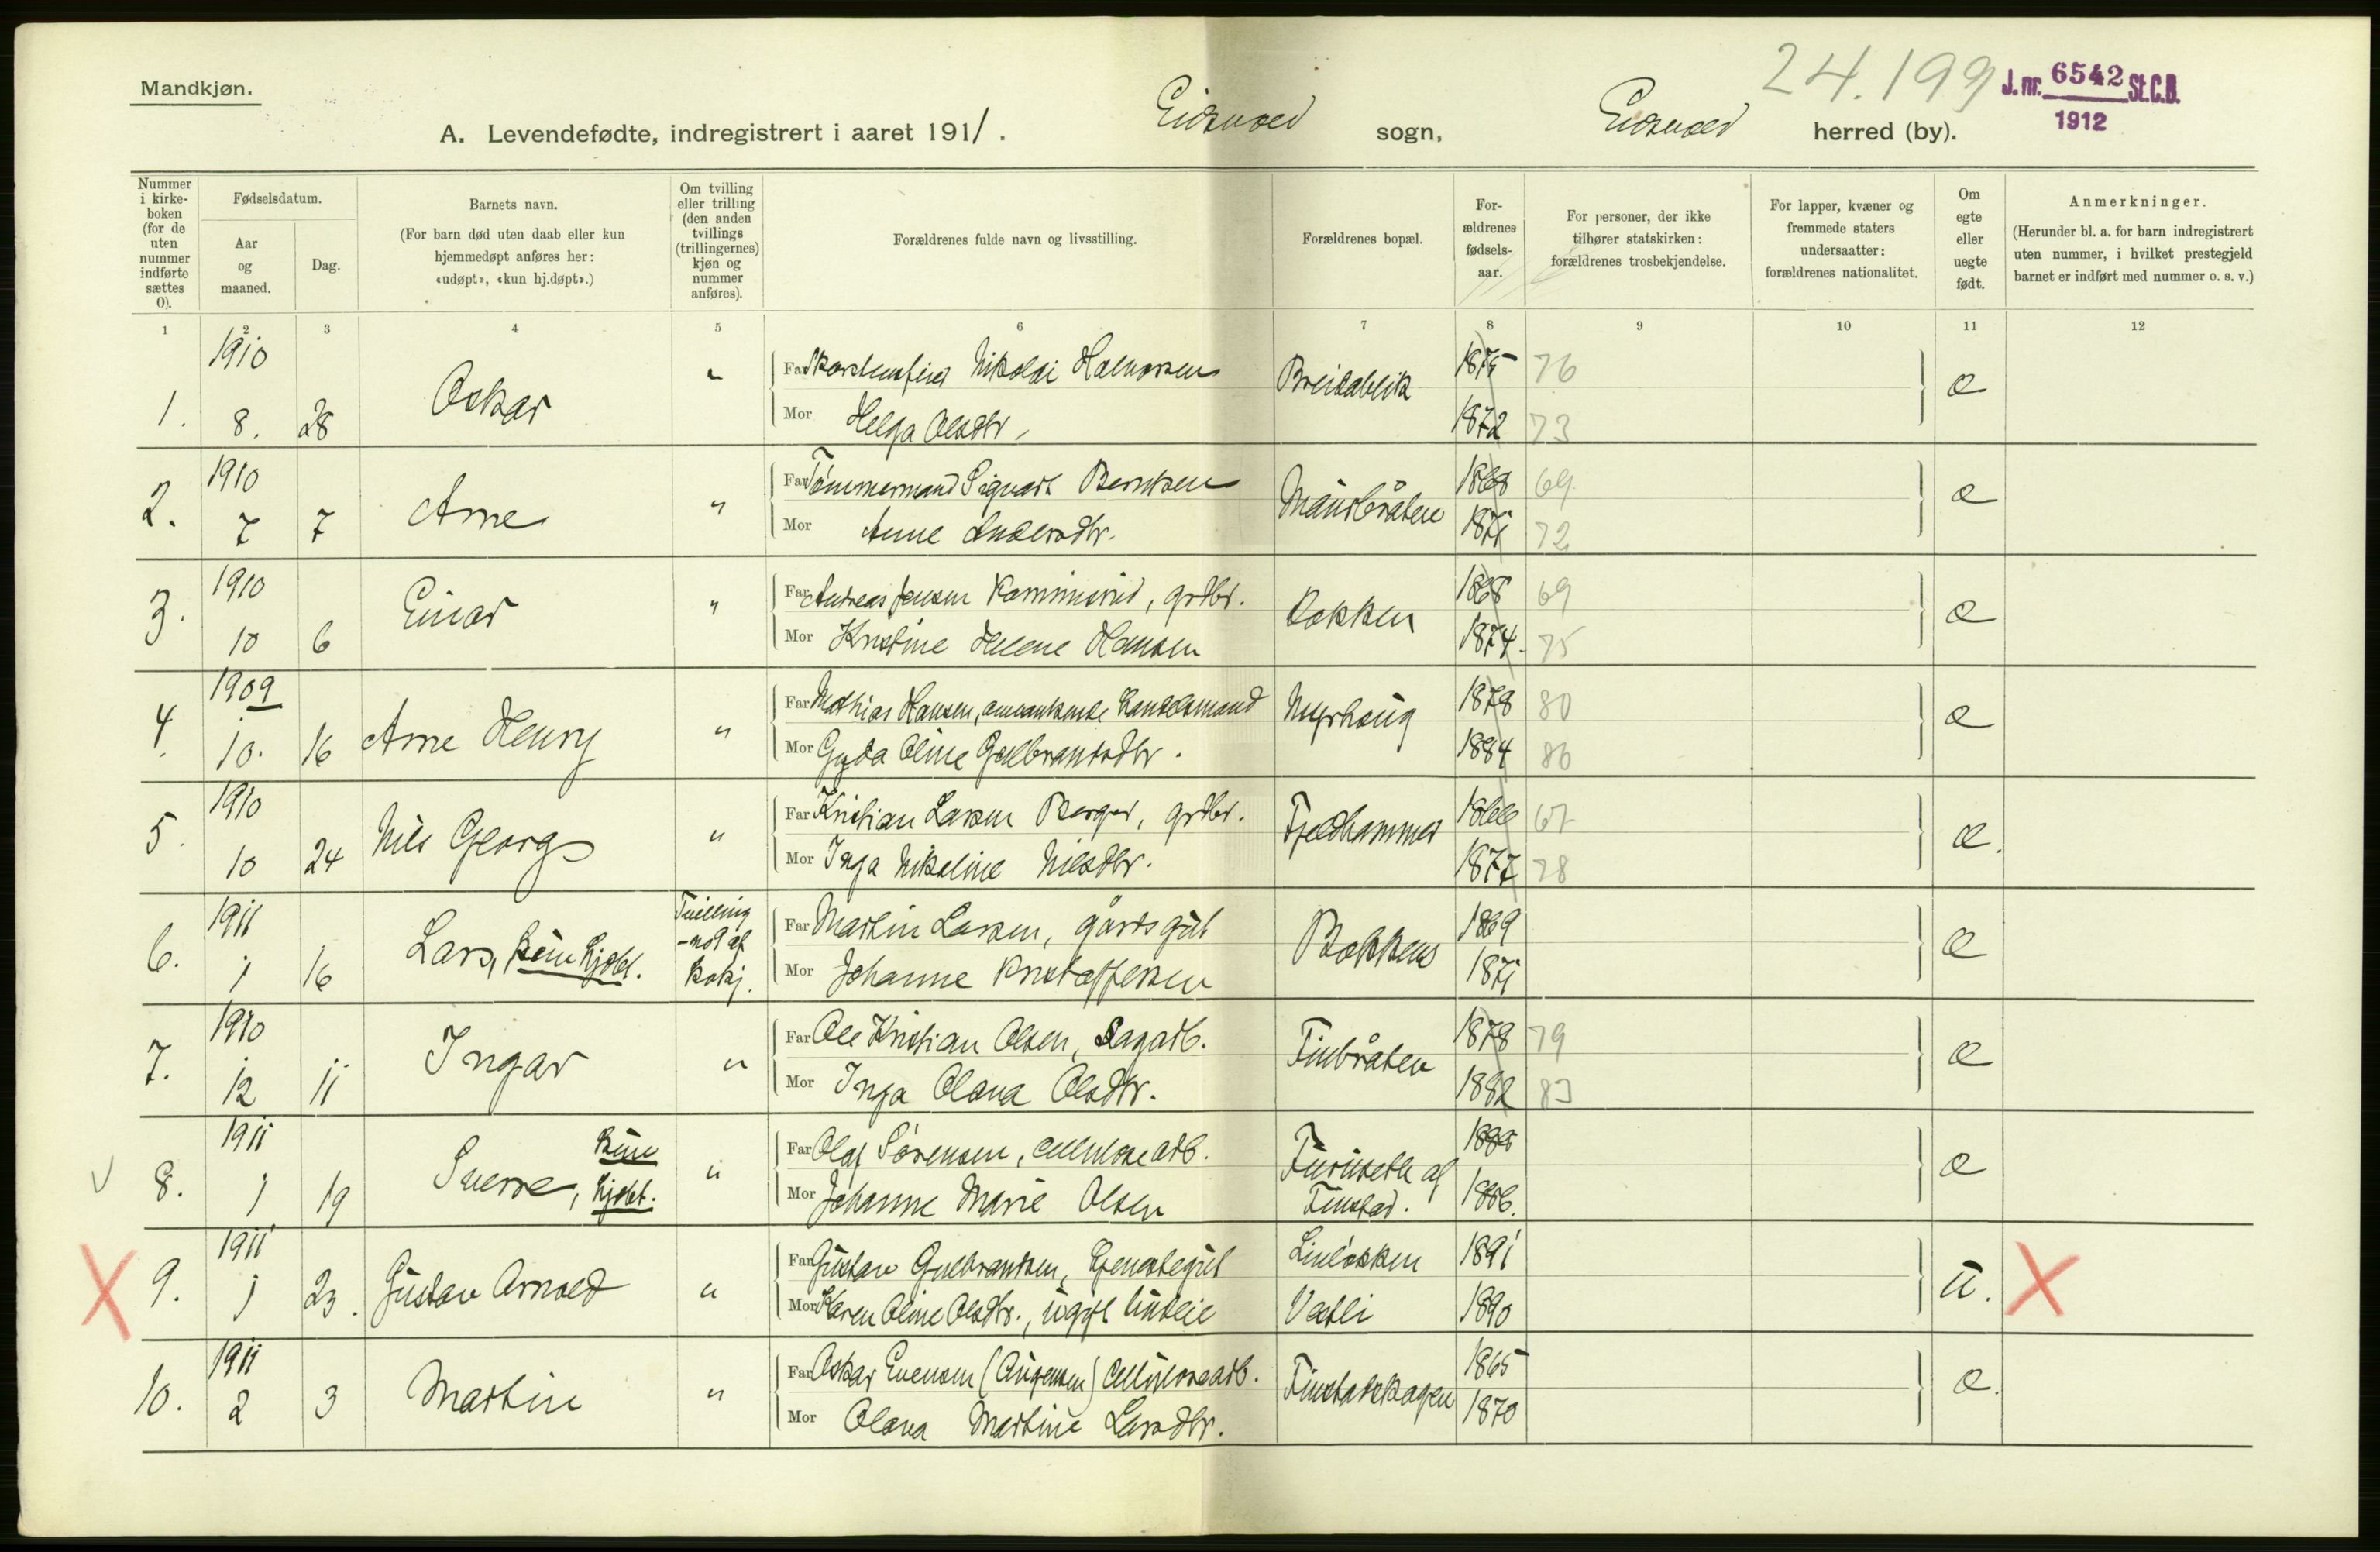 Mandkjøn.
24.199
J. nr. 6542 St.C.B.
1912
A. Levendefødte, indregistrert i aaret 1911. Eidsvold sogn, Eidsvold herred (by).
Nummer i kirke-boken (for de uten nummer indførte sættes 0).
Fødselsdatum.
Aar og maaned.
Dag.
Barnets navn.
(For barn død uten daab eller kun hjemmedøpt anføres her: «udøpt», «kun hj.døpt».)
Om tvilling eller trilling (den anden tvillings (trillingernes) kjøn og nummer anføres).
Forældrenes fulde navn og livsstilling.
Forældrenes bopæl.
For-ældrenes fødsels-aar.
For personer, der ikke tilhører statskirken: forældrenes trosbekjendelse.
For lapper, kvæner og fremmede staters undersaatter: forældrenes nationalitet.
Om egte eller uegte født.
Anmerkninger.
(Herunder bl. a. for barn indregistrert uten nummer, i hvilket prestegjeld barnet er indført med nummer o. s. v.)
1 2 3 4 5 6 7 8 9 10 11 12
1910 Far Nikolai Halvorsen 1875 76
1. 8. 28 Oskar " Breidablik æ
Mor Helga Olsdtr. 1872 73
1910 Far Tømmermand Sigvart Berntsen 1868 69
2. 7 7 Arne " æ
Mor Anne Andersdtr. 1871 72
1910 Far Andreas Jensen, grdbr. 1868 69
3. 10 6 Einar " Bakken æ
Mor Kristine Helene Hansen 1874. 75
1909 Far Mathias Hansen, omvankende handelsmand 1878 80
4. 10. 16 Arne Henry " Myrhaug æ
Mor Gyda Oline Gulbrandsdtr. 1884 86
1910 Far Kristian Larsen Berger, grdbr. 1866 67
5. 10 24 Nils Georg " Fjeldhammer æ.
Mor Inga Nikoline Nilsdtr. 1877 78
1911 Tvilling Far Martin Larsen, gårdsgut 1869
6. 1 16 Lars, kun hjdbt. - no 9 af kvkj. Bakken æ
Mor Johanne Kristoffersen 1871
1910 Far Ole Kristian Olsen, Sagarb. 1878 79
7. 12 11 Ingar " Finbråten æ
Mor Inga Olava Olsdtr. 1882 83
1911 Far Olaf Sørensen, cellulosearb. 1885
8. 1 19 Sverre, kun hjdbt. " Furuseth af Finstad. æ
Mor Johanne Marie Olsen 1886.
1911 Far Gustav Gulbrandsen, tjenestegut Linløkken 1891
9. 1 23. Gustav Arnold " u.
Mor Karen Oline Olsdtr., ugift budeie 1890
1911 Far Oskar Evensen cellulosearb. 1865
10. 2 3 Martin " Finstadskagen æ.
Mor Olava Martine Larsdtr. 1870